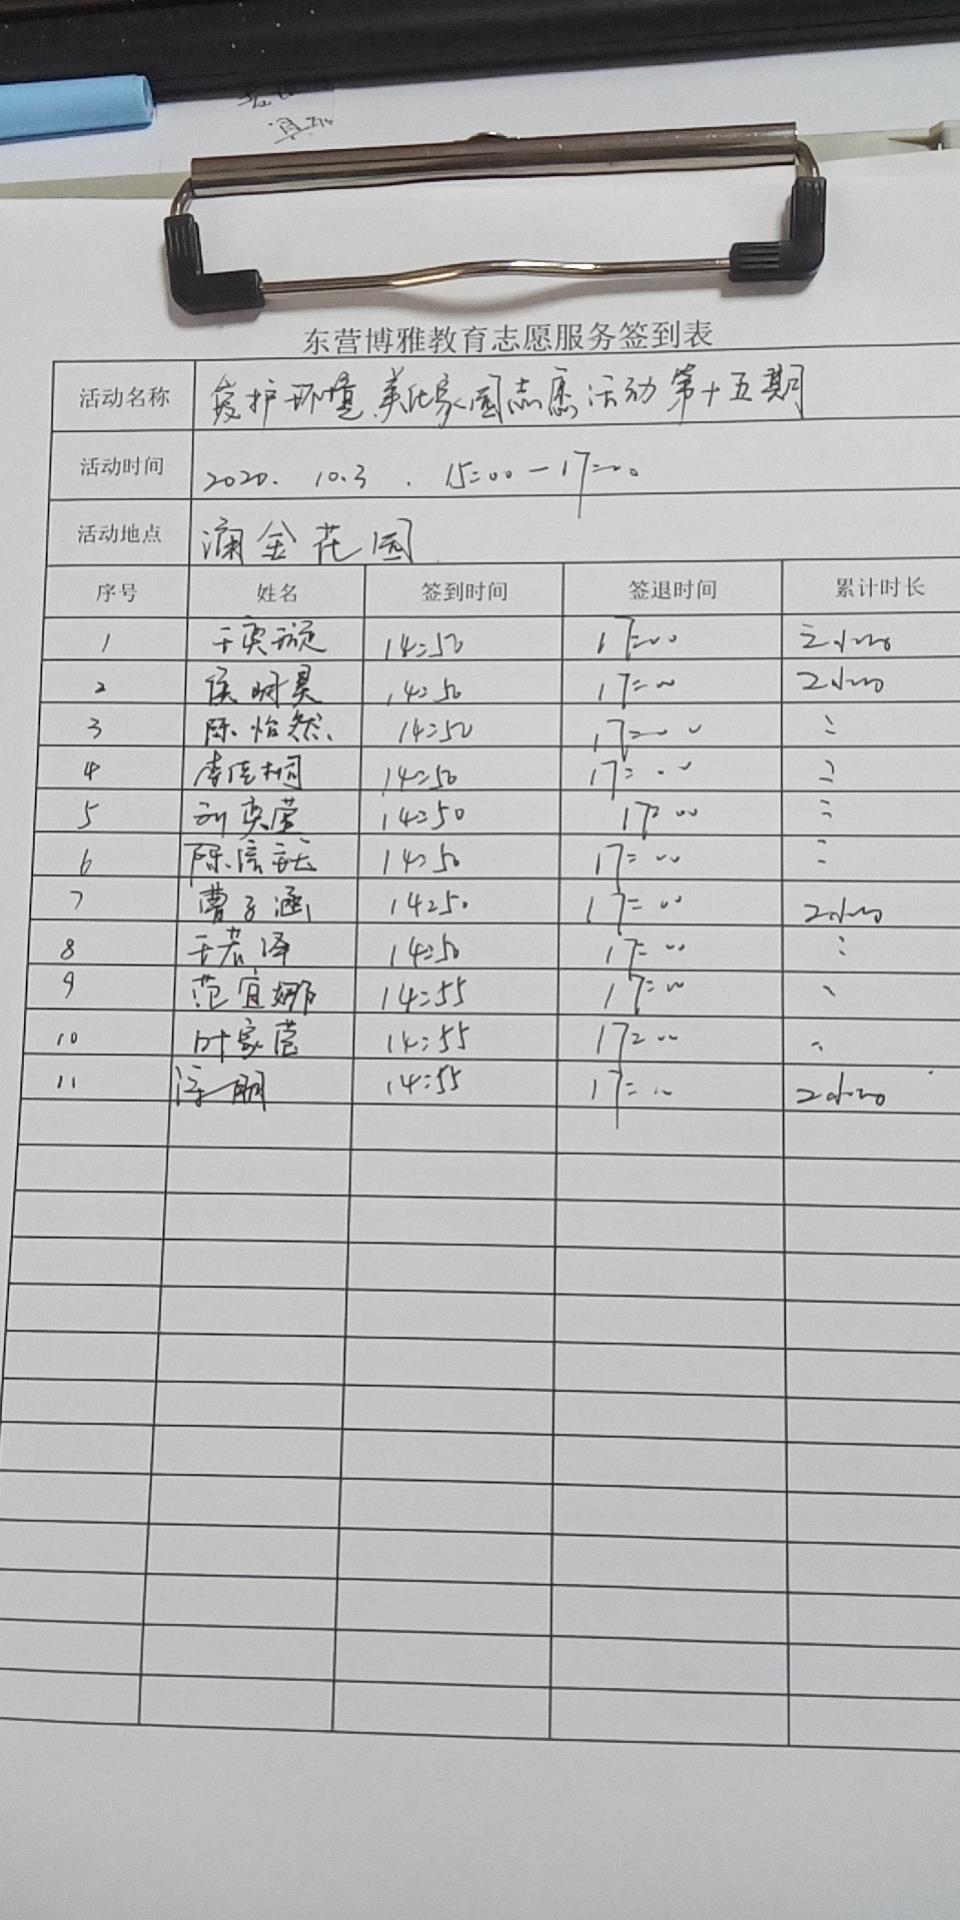 东营博雅教育志愿服务签到表
活动名称 爱护环境 美化家园志愿活动第十五期
活动时间 2020. 10.3 . 15:00-17:00
活动地点 澜金花园
序号 姓名 签到时间 签退时间 累计时长
1 14:50 17:00 2小时
2 14:50 17:00 2小时
3 陈怡然 14:50 17:00
4 李佳桐 14:50 17:00
5 刘奕莹 14:50 17:00
6 14:50 17:00
7 曹子涵 14:50 17:00 2小时
8 王若泽 14:50 17:00
9 范宜娜 14:55 17:00
10 叶家莹 14:55 17:00
11 14:55 17:00 2小时